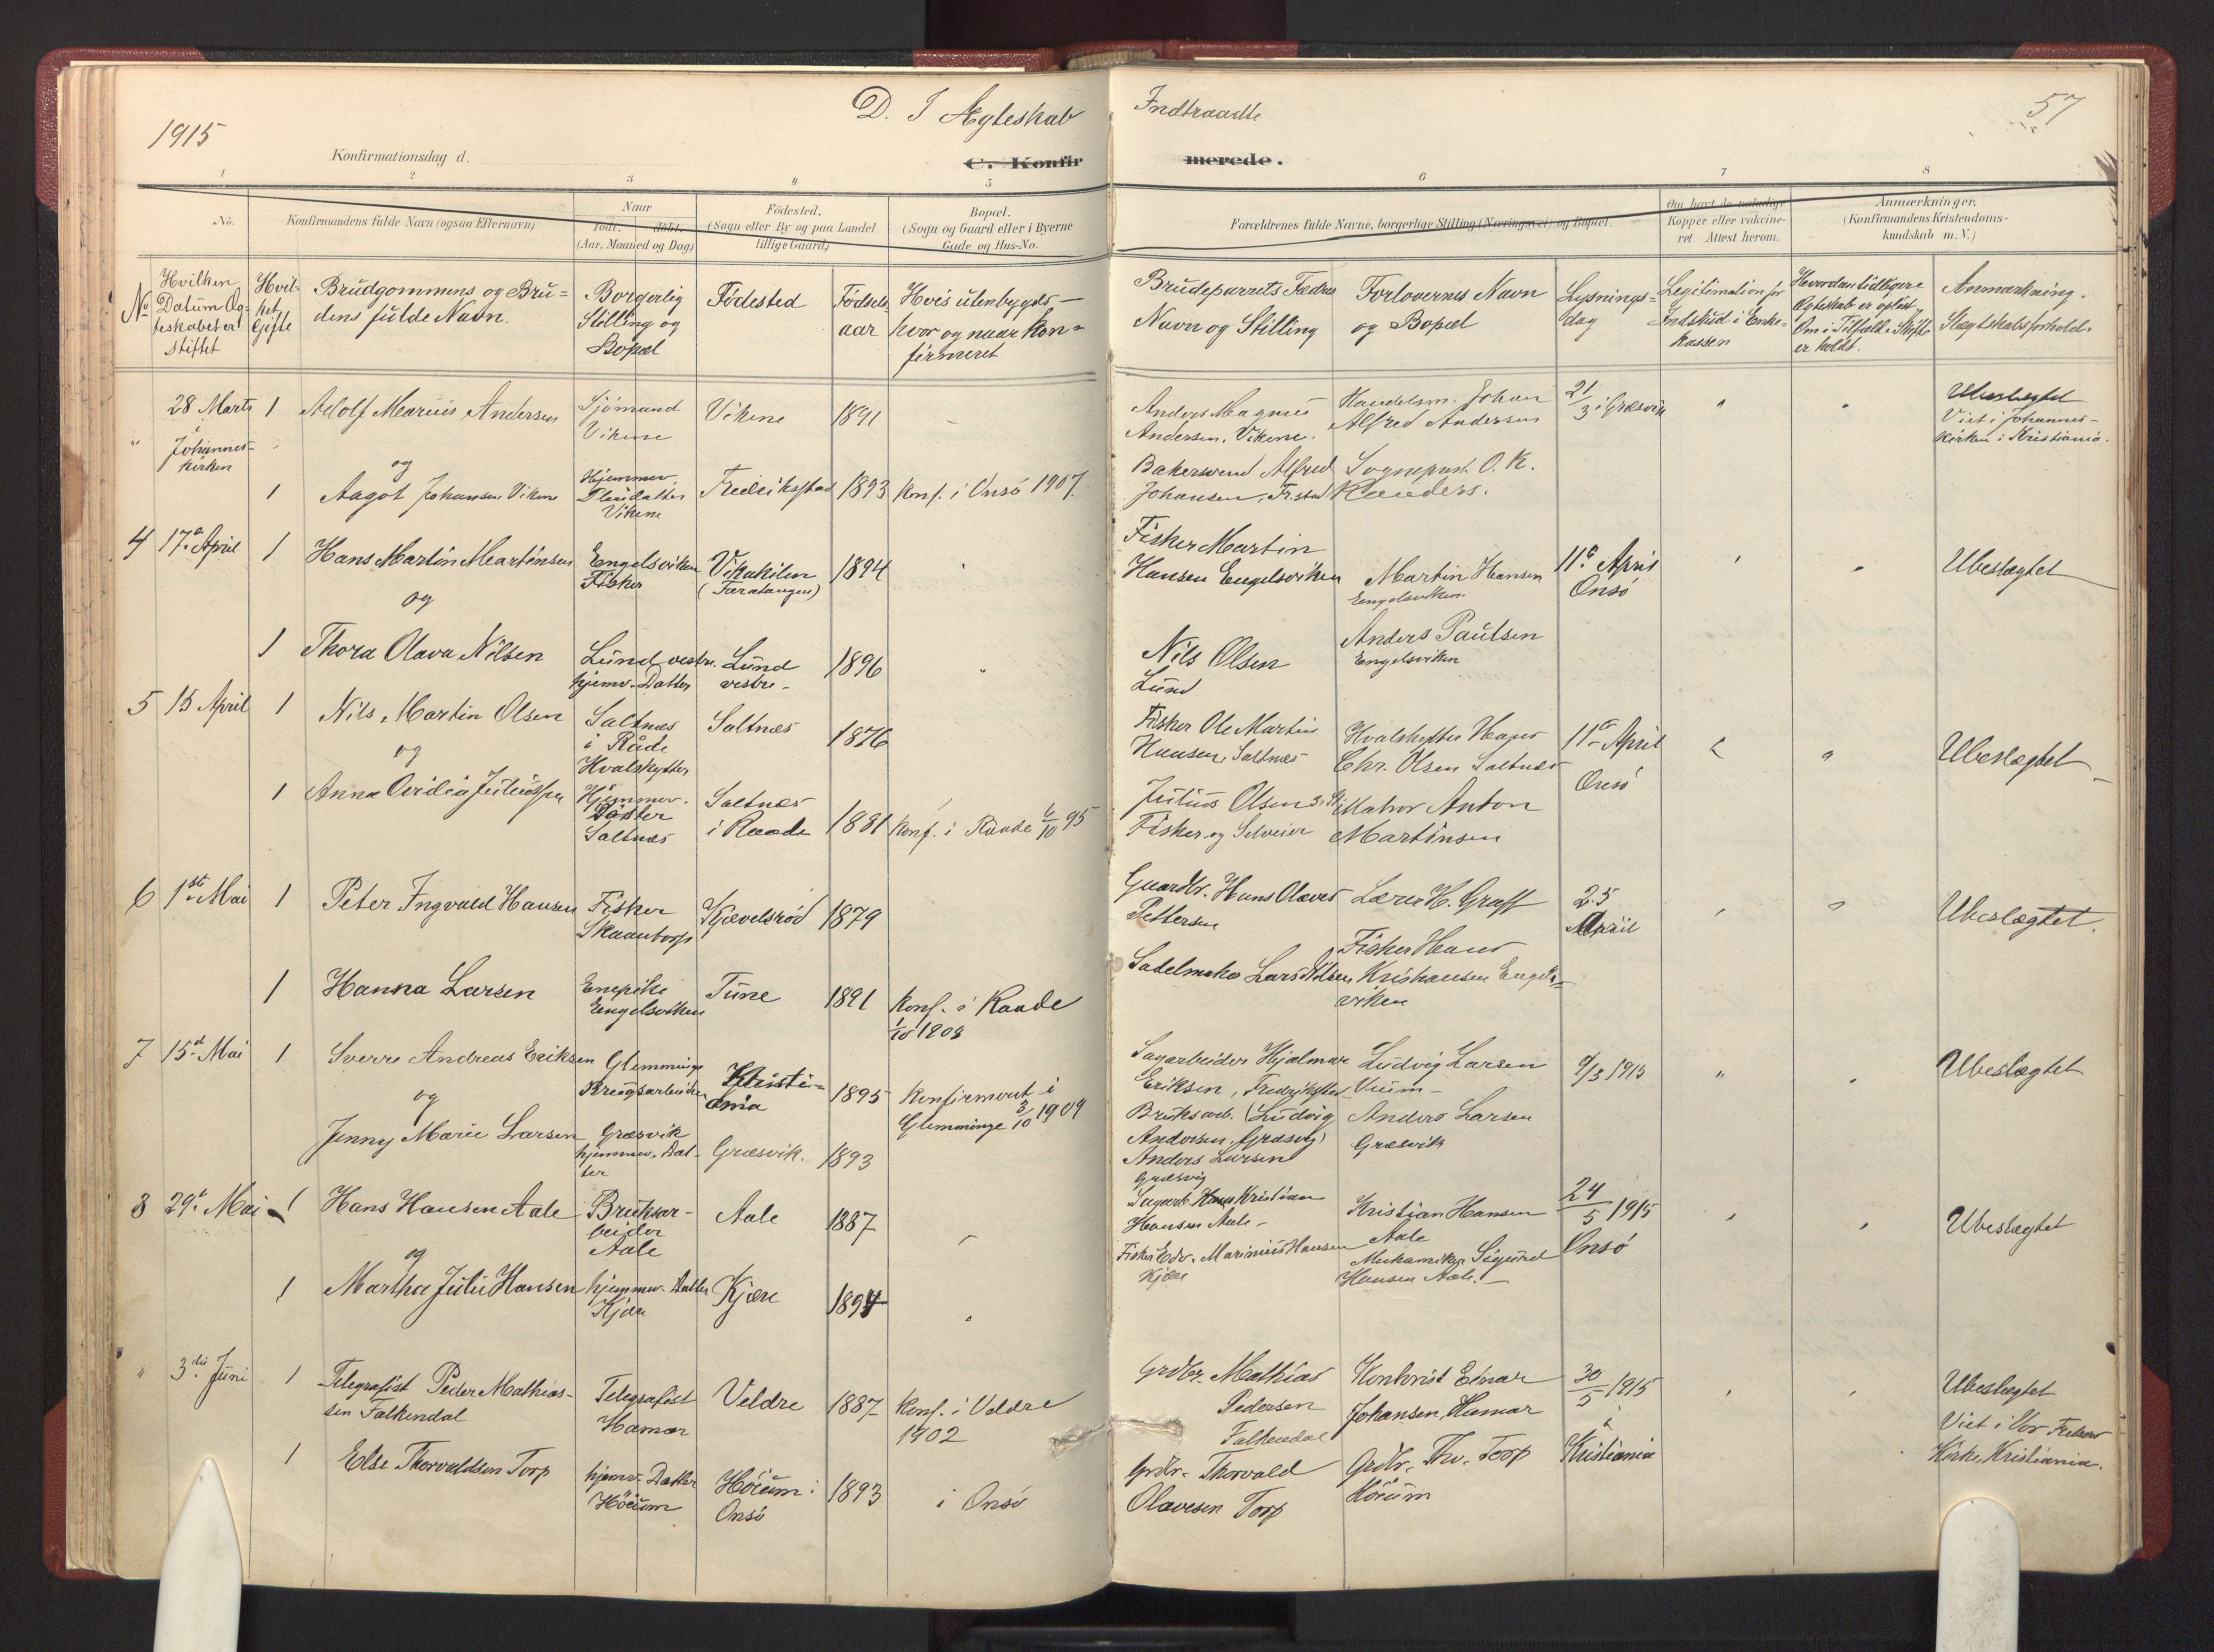 1915
D. I Ægteskab Indtraadte
57
Konfirmationsdag d.
C. Konfirmerede.
1 2 3 4 5 6 7 8
No.
Konfirmandens fulde Navn (ogsaa Efternavn)
Naar
født. døbt.
(Aar, Maaned og Dag)
Fødested.
(Sogn eller By og paa Landet
tillige Gaard)
Bopæl.
(Sogn og Gaard eller i Byerne
Gade og Hus-No.
Forældrenes fulde Navne, borgerlige Stilling (Næringsvei) og Bopæl.
Om havt de naturlige
Kopper eller vaccine-
ret. Attest herom.
Anmærkninger.
(Konfirmandens Kristendoms-
kundskab m. V.)
No
Hvilken
Datum Æg-
teskabet er
stiftet
Hvil-
ket
Gifte
Brudgommens og Bru-
dens fulde Navn.
Borgerlig
Stilling og
Bopæl
Födested
Födsels
aar
Hvis utenbygds -
hvor og naar kon-
firmeret
Brudeparrets Fædres
Navn og Stilling
Forlovernes Navn
og Bopæl
Lysnings-
dag
Legitimation for
Indskud i Enke-
kassen
Hvordan tidligere
Egteskab er oplöst,
Om i Tilfælde Skifte
er holdt.
Anmærkning.
Slægtskabsforhold.
" 28 Marts
i
Johannes-
kirken
1 Adolf Marius Andersen
Sjömand
Vikene
Vikene
1891
Anders Magnus
Andersen, Vikene.
Handelsm. Johan
Alfred Andersen
21/3 i Græsvik
"
"
Ubeslægtet
Viet i Johannes-
kirken i Kristiania.
og
1 Aagot Johansen Vikene
Hjemmev.
Vikene
Fredrikstad
1893
Konf. i Onsö 1907
Bakersvend Alfred
Johansen, Fr.stad
Sogneprest O. K.
Randers.
4 17de April 1
Hans Martin Martinsen
Engelsviken
Fisker
Vikakilen
1894
Fisker Martin
Hansen Engelsviken
Martin Hansen
Engelsviken
11te April
Onsö
Ubeslægtet
og
1 Thora Olava Nilsen
Lund vestre.
hjemv. Datter
Lund
vestre -
1896
Nils Olsen
Lund
Anders Paulsen
Engelsviken
5 15 April 1
Nils Martin Olsen
Saltnæs
i Råde
Hvalskytter
Saltnæs
1876
Fisker Ole Martin
Hansen, Saltnæs
Hvalskytter Hans
Chr. Olsen Saltnæs
11te April
Onsö
Ubeslægtet
og
1 Anna Ovidia Juliussen
Hjemmev.
Datter
Saltnæs
Saltnæs
i Raade
1881
Konf. i Raade 6/10 95
Julius Olsen
Fisker og Selveier
Matros Anton
Martinsen
6 1ste Mai 1
Peter Ingvald Hansen
Fisker
Skaantorp
Kjævelsröd
1879
Gaardbr. Hans Olaves
Pettersen
Lærer H. Graff
25
April
Ubeslægtet.
1 Hanna Larsen
Enepike
Engelsviken
Tune
1891
Konf. i Raade
1/10 1908
Sadelmaker Lars Olsen
Fisker Hans
Kristiansen Engels-
viken
7 15de Mai 1
Sverre Andreas Eriksen
Glemminge
Brugsarbeider
Kristi-
ania
1895
Konfirmeret i
Glemminge 3/10 1909
Sagarbeider Hjalmar
Eriksen, Fredrikstad
Ludvig Larsen
9/5 1915
"
Ubeslægtet
og
Jenny Marie Larsen
Græsvik
hjemmev. Dat-
ter
Græsvik.
1893
Bruksarb. (Ludvig
Andersen, Græsvig)
Anders Larsen
Græsvig
Anders Larsen
Græsvik
8 29de Mai 1
Hans Hansen Aale
Bruksar-
beider
Aale
Aale
1887
Sagarb. Hans Kristian
Hansen Aale -
Kristian Hansen
Aale
24/5 1915
Onsö
Ubeslægtet
og
1 Martha Julie Hansen
hjemmev. Datter
Kjære
Kjære
1894
Fisker Edv. Marinius Hansen
Kjære
Mekaniker Sigurd
Hansen Aale. -
" 3die Juni 1
Telegrafist Peder Mathias-
sen Falkendal
Telegrafist
Hamar
Veldre
1887
Konf. i Veldre
1902
Grdbr. Mathias
Pedersen
Falkendal
Kontorist Einar
Johansen, Hamar
30/5 1915
i
Kristiania
Ubeslægtet
Viet i Vor Frelsers
Kirke, Kristiania.
1 Else Thorvaldsen Torp
hjemv. Datter
Höium
Höium i
Onsö
1893
i Onsö
Grdbr. Thorvald
Olavesen Torp
Grdbr. Thv. Torp
Höium